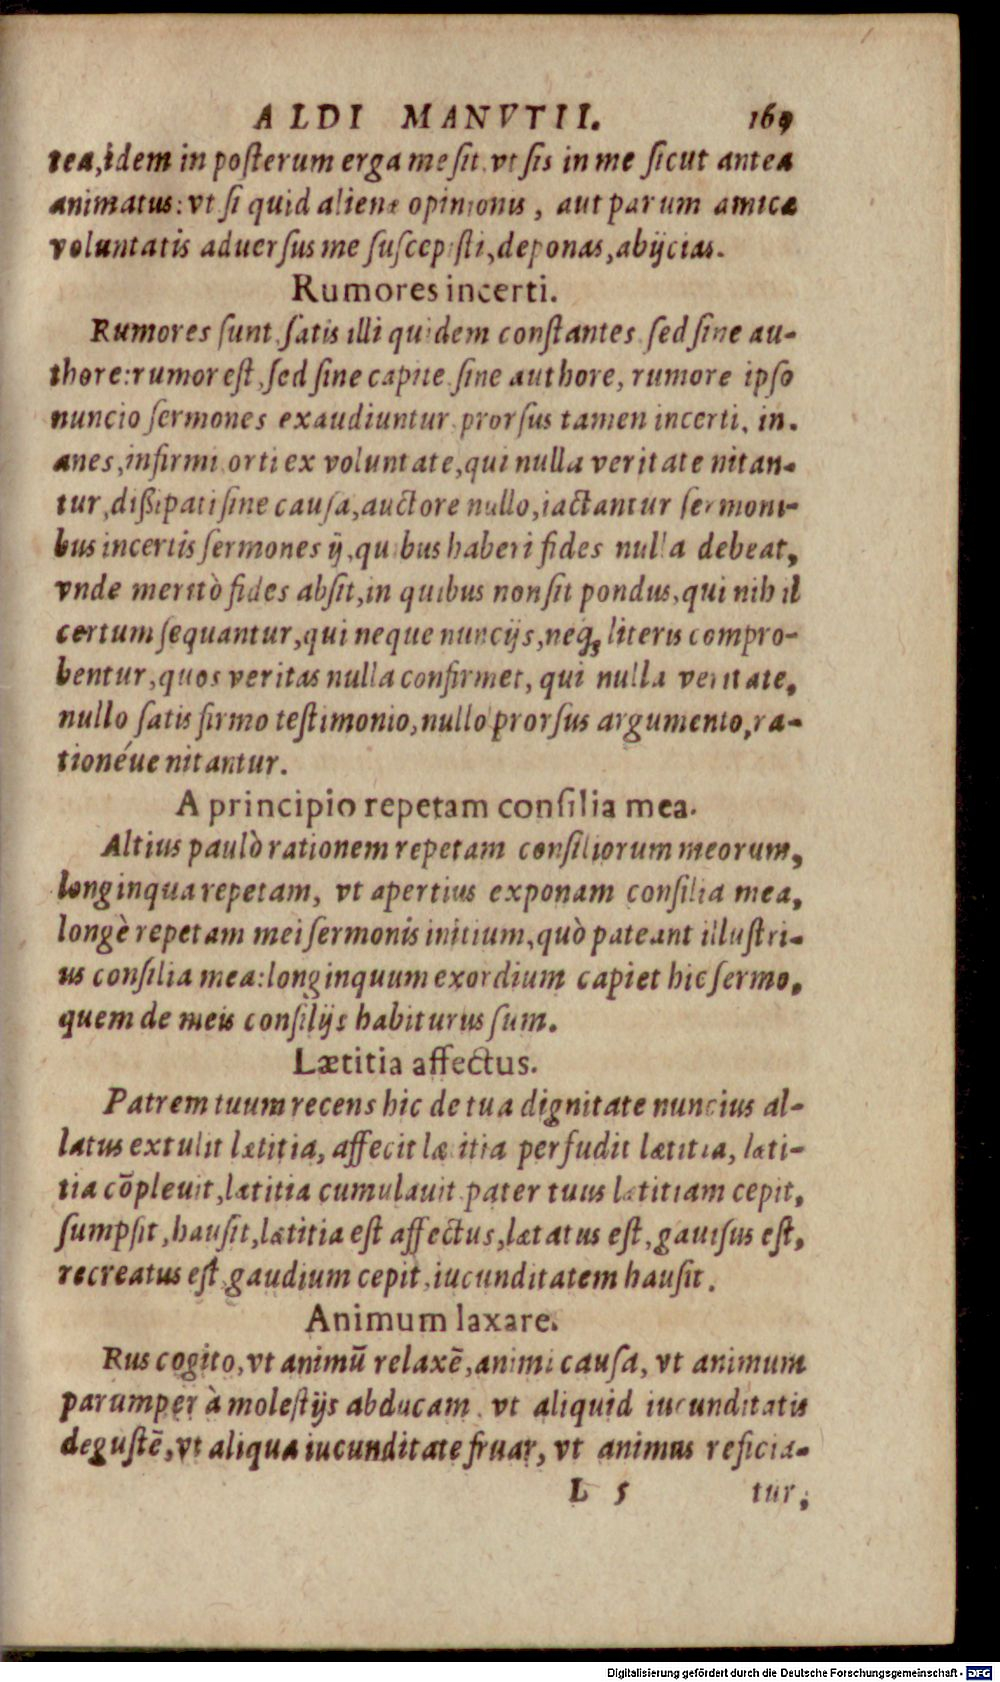 ALDI MANVTII. 169
tea, idem in poſterum erga me ſit, vt ſis in me ſicut antea
animatus: vt ſi quid alienæ opinionis, aut parum amicæ
voluntatis aduerſus me ſuſcepiſti, deponas, abijcias.
Rumores incerti.
Rumores ſunt, ſatis illi quidem conſtantes, ſed ſine au-
thore: rumor eſt, ſed ſine capite, ſine authore, rumore ipſo
nuncio ſermones exaudiuntur, prorſus tamen incerti, in-
anes, infirmi, orti ex voluntate, qui nulla veritate nitan-
tur, dißipati ſine cauſa, auctore nullo, iactantur ſermoni-
bus incertis ſermones ij, quibus haberi fides nulla debeat,
vnde meritò fides abſit, in quibus non ſit pondus, qui nihil
certum ſequantur, qui neque nuncijs, neq; literis compro-
bentur, quos veritas nulla confirmet, qui nulla veritate,
nullo ſatis firmo teſtimonio, nullo prorſus argumento, ra-
tionéue nitantur.
A principio repetam conſilia mea.
Altius paulò rationem repetam conſiliorum meorum,
longinqua repetam, vt apertius exponam conſilia mea,
longè repetam mei ſermonis initium, quò pateant illuſtri-
us conſilia mea: longinquum exordium capiet hic ſermo,
quem de meis conſilijs habiturus ſum.
Lætitia affectus.
Patrem tuum recens hic de tua dignitate nuncius al-
latus extulit lætitia, affecit lætitia perfudit lætitia, læti-
tia cōpleuit, lætitia cumulauit pater tuus lætitiam cepit,
ſumpſit, hauſit, lætitia eſt affectus, lætatus eſt, gauiſus eſt,
recreatus eſt, gaudium cepit, iucunditatem hauſit.
Animum laxare.
Rus cogito, vt animū relaxē, animi cauſa, vt animum
parumper à moleſtijs abducam, vt aliquid iucunditatis
deguſtē, vt aliqua iucunditate fruar, vt animus reficia-
L 5 tur,
Digitalisierung gefördert durch die Deutsche Forschungsgemeinschaft - DFG